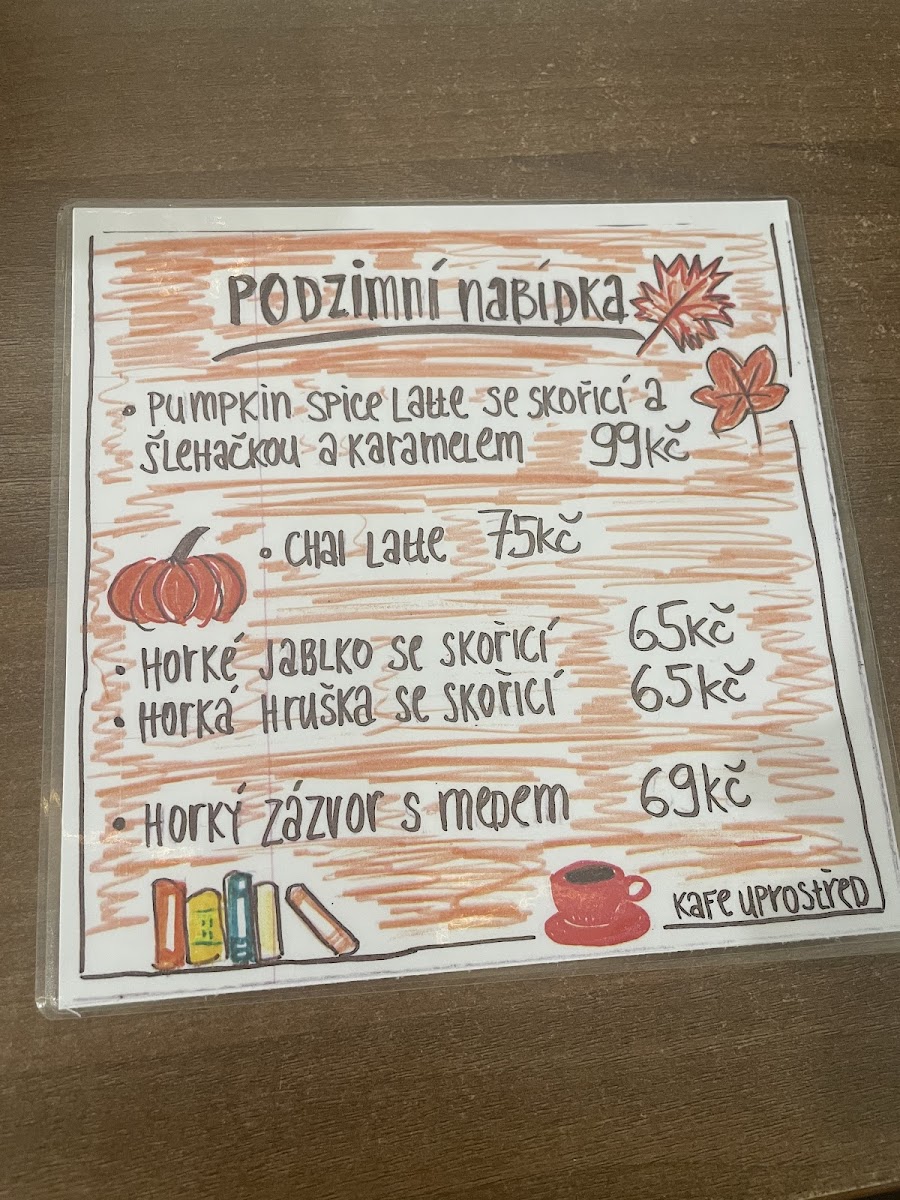 PODZIMNÍ NABÍDKA
• PUMPKIN SPICE LATTE SE SKOŘICÍ A
ŠLEHAČKOU A KARAMELEM 99KČ
• CHAI LATTE 75KČ
• HORKÉ JABLKO SE SKOŘICÍ 65KČ
• HORKÁ HRUŠKA SE SKOŘICÍ 65KČ
• HORKÝ ZÁZVOR S MEDEM 69KČ
KAFE UPROSTŘED